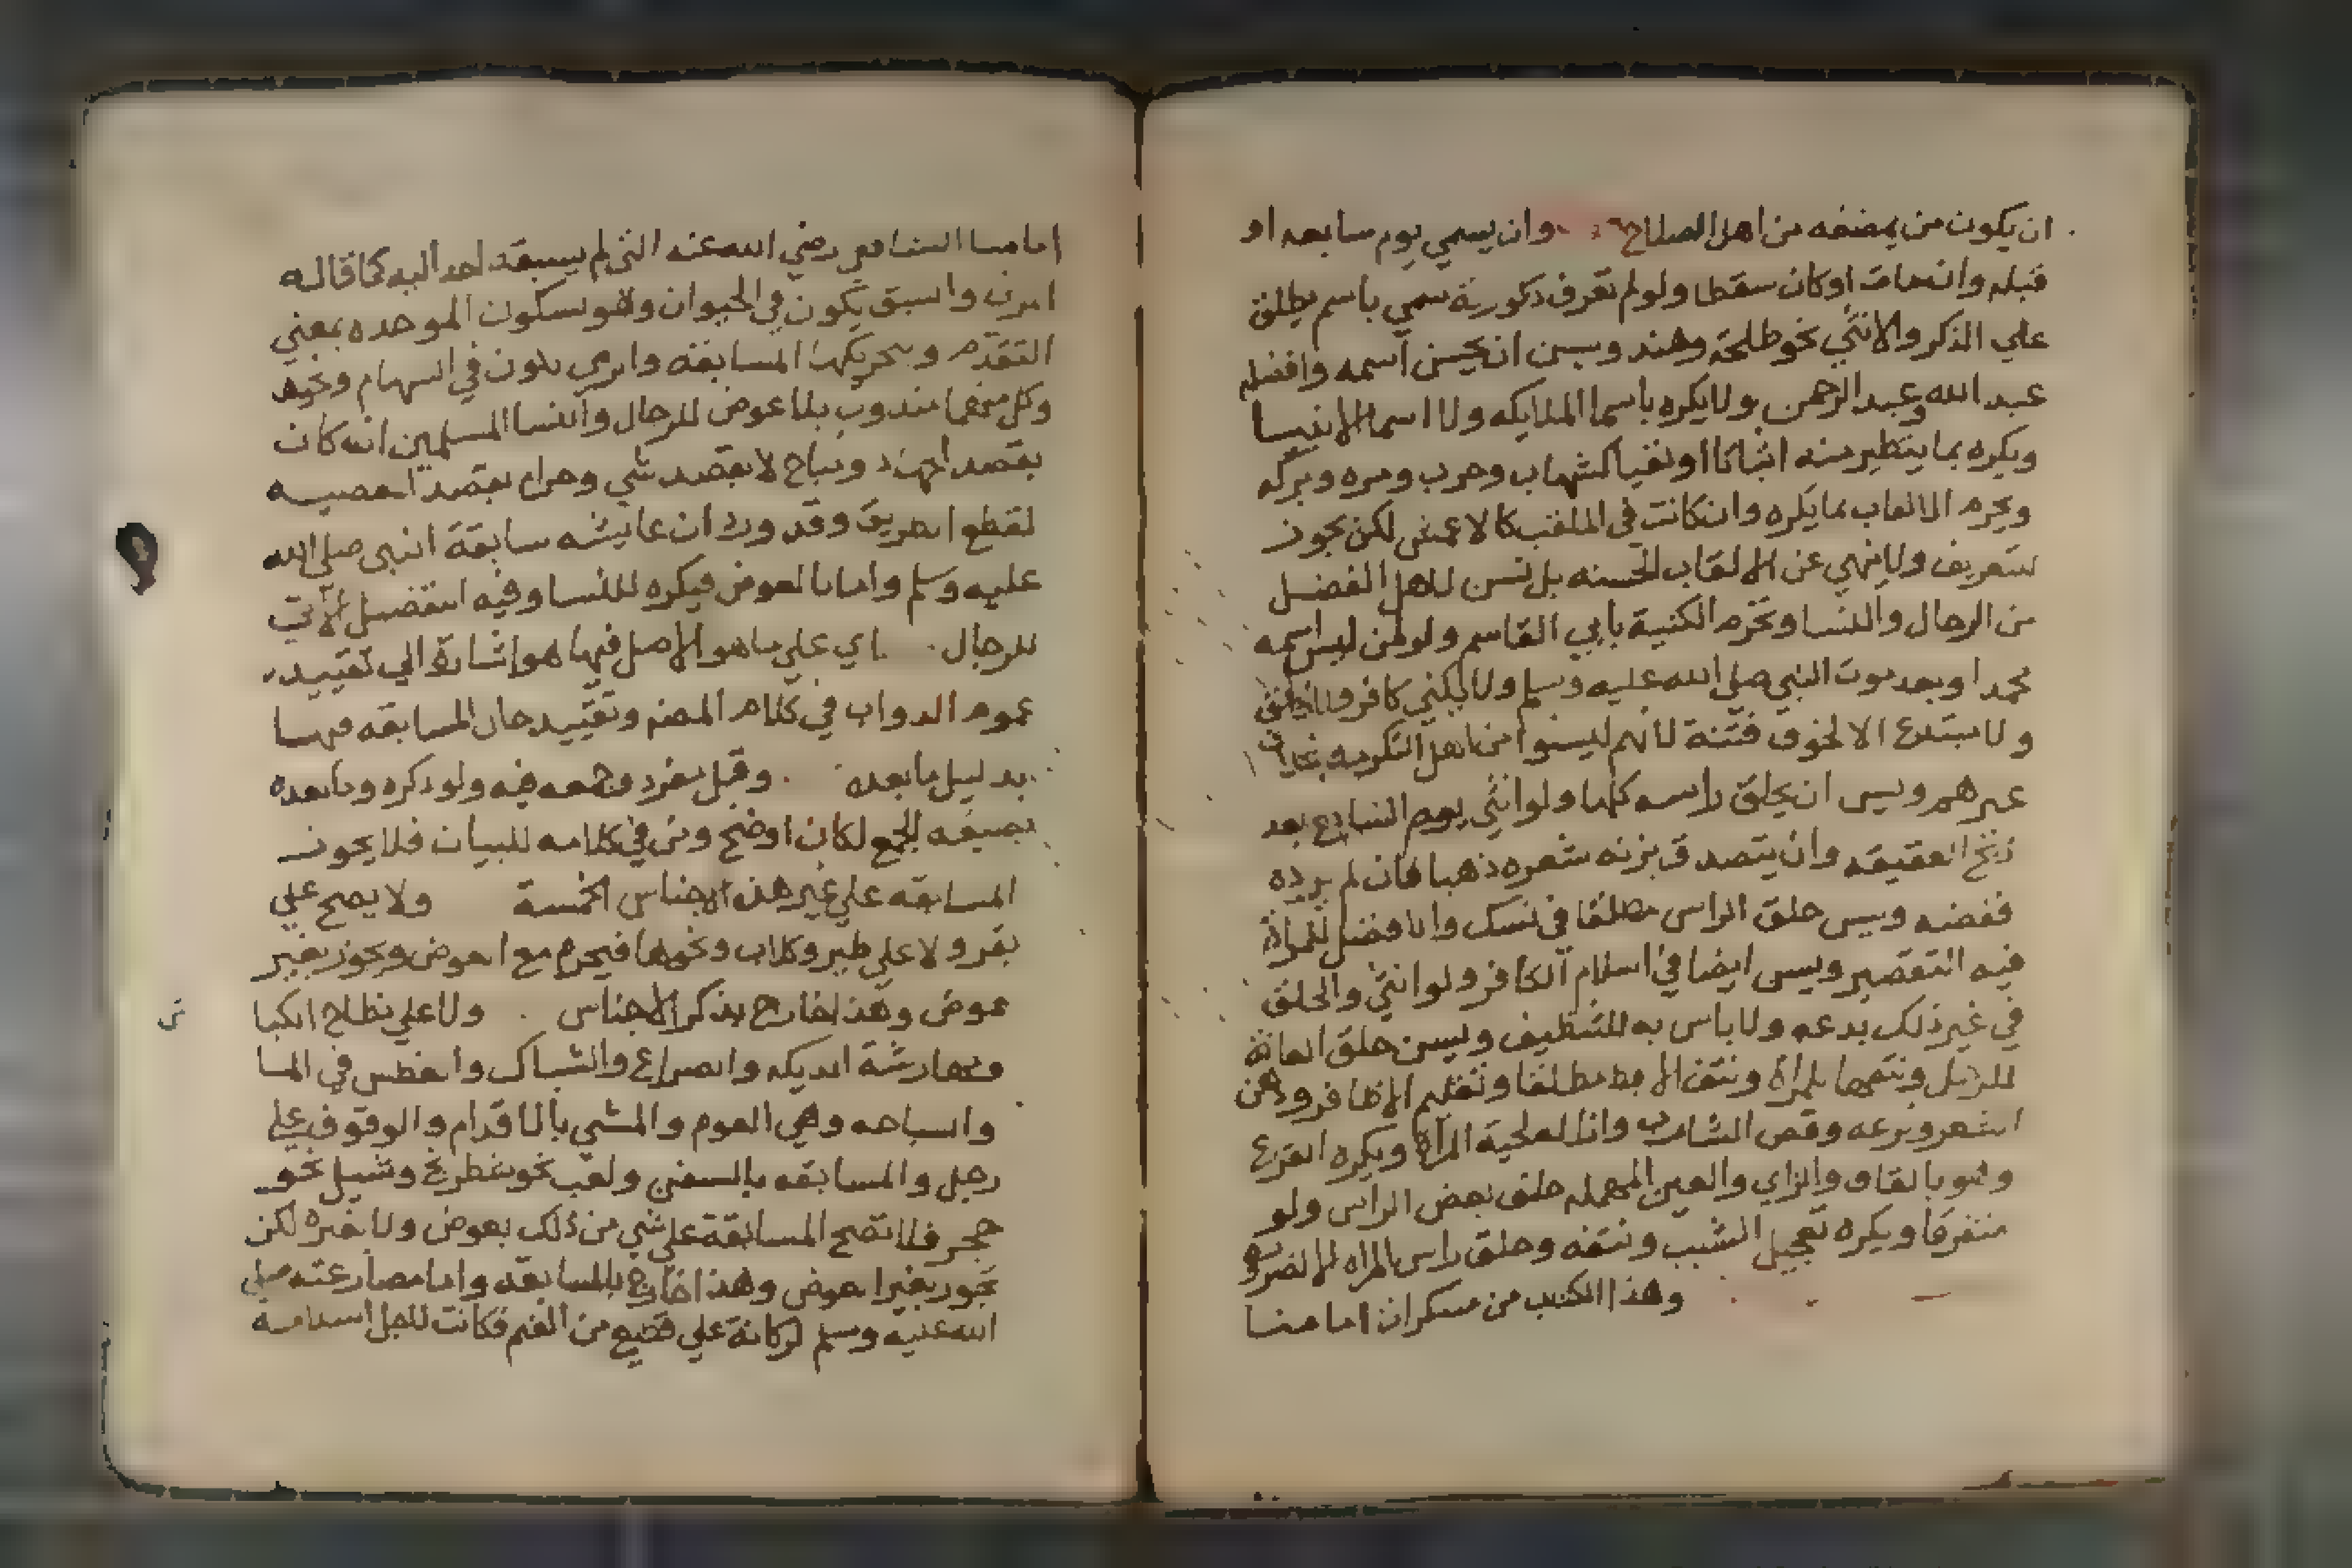 ان يكون من يمضغه من اهل الصلاح وان يسمي يوم سابعه او
قبله وان مات او كان سقطا ولو لم تعرف ذكوريته سمي باسم يطلق
علي الذكر والانثي نحو طلحة وهند ويسن ان يحسن اسمه وافضله
عبد الله وعبد الرحمن ولا يكره باسما الملايكه ولا اسما الانبيا
ويكره بما يتطير منه اثباتا او نفيا كشهاب وحرب ومره وبركه
ويحرم الالقاب بما يكره وان كانت في الملقب كالاعمش لكن يجوز
للتعريف ولا ينهي عن الالقاب الحسنه بل تسن لاهل الفضل
من الرجال والنسا وتحرم الكنية بابي القاسم ولو لمن ليس اسمه
محمدا وبعد موت النبي صلي الله عليه وسلم ولا يكني كافر ولا
ولا مبتدع الا لخوف فتنة لانهم ليسوا من اهل التكرمه بخلاف
غيرهم ويسن ان يحلق راسه كلها ولو انثي يوم السابع بعد
ذبح العقيقه وان يتصدق بزنه شعره ذهبا فان لم يرده
ففضه ويسن حلق الراس مطلقا في نسك والافضل للمراة
فيه التقصير ويسن ايضا في اسلام الكافر ولو انثي والحلق
في غير ذلك بدعه ولا باس به للتنظيف ويسن حلق العانة
للرجل ونتفها للمراة ونتف الابط مطلقا وتقليم الاظافر ودهن
الشعر وقص الشارب وازالة لحية المراة ويكره القزع
وهو بالقاف والزاي والعين المهمله حلق بعض الراس ولو
متفرقا ويكره تعجيل الشيب ونتفه وحلق راس المراه الا لضرورة
وهذا الكتب من مبتكران امامنا
امامنا الشافعي رضي الله عنه التي لم يسبقه احد اليه كما قاله
المزني والسبق يكون في الحيوان وهو بسكون الموحده بمعني
التقدم وبتحريكها المسابقه والرمي يكون في السهام ونحوها
وكل منهما مندوب بلا عوض للرجال والنسا المسلمين انه كان
بقصد الجهاد ومباح لا بقصد شي وحرام بقصد المعصيه
لقطع الطريق وقد ورد ان عايشه سابقة النبي صلي الله
عليه وسلم واما بالعوض فيكره للنسا وفيه التفضيل الاتي
للرجال. اي علي ما هو الاصل فيها هو اشارة الي تقييد
عموم الدواب في كلام المصنف وتقييد حال المسابقه فيها
بدليل ما بعده. وقيل مفرد وجمعه فيه ولو ذكره وما بعده
بصيغه الجمع لكان اوضح ومن في كلامه للبيان فلا يجوز
المسابقه علي غير هذه الاجناس الخمسة ولا يصح علي
بقر ولا علي طير وكلاب ونحوها فيحرم مع العوض ويجوز بغير
عوض وهذا خارج بذكر الاجناس. ولا علي نطاح الكبا
ومهارشة الديكه والصراع والشباك والغطس في الما
والسباحه وهي العوم والمشي بالاقدام والوقوف علي
رجل والمسابقه بالسفن ولعب نحو شطرنج وشيل نحو
حجر فلا تصح المسابقة علي شي من ذلك بعوض ولا غيره لكن
تجوز بغير العوض وهذا خارج بالمسابقه واما مصارعته صلي
الله عليه وسلم لركانة علي قطيع من الغنم فكانت لاجل اسلامه